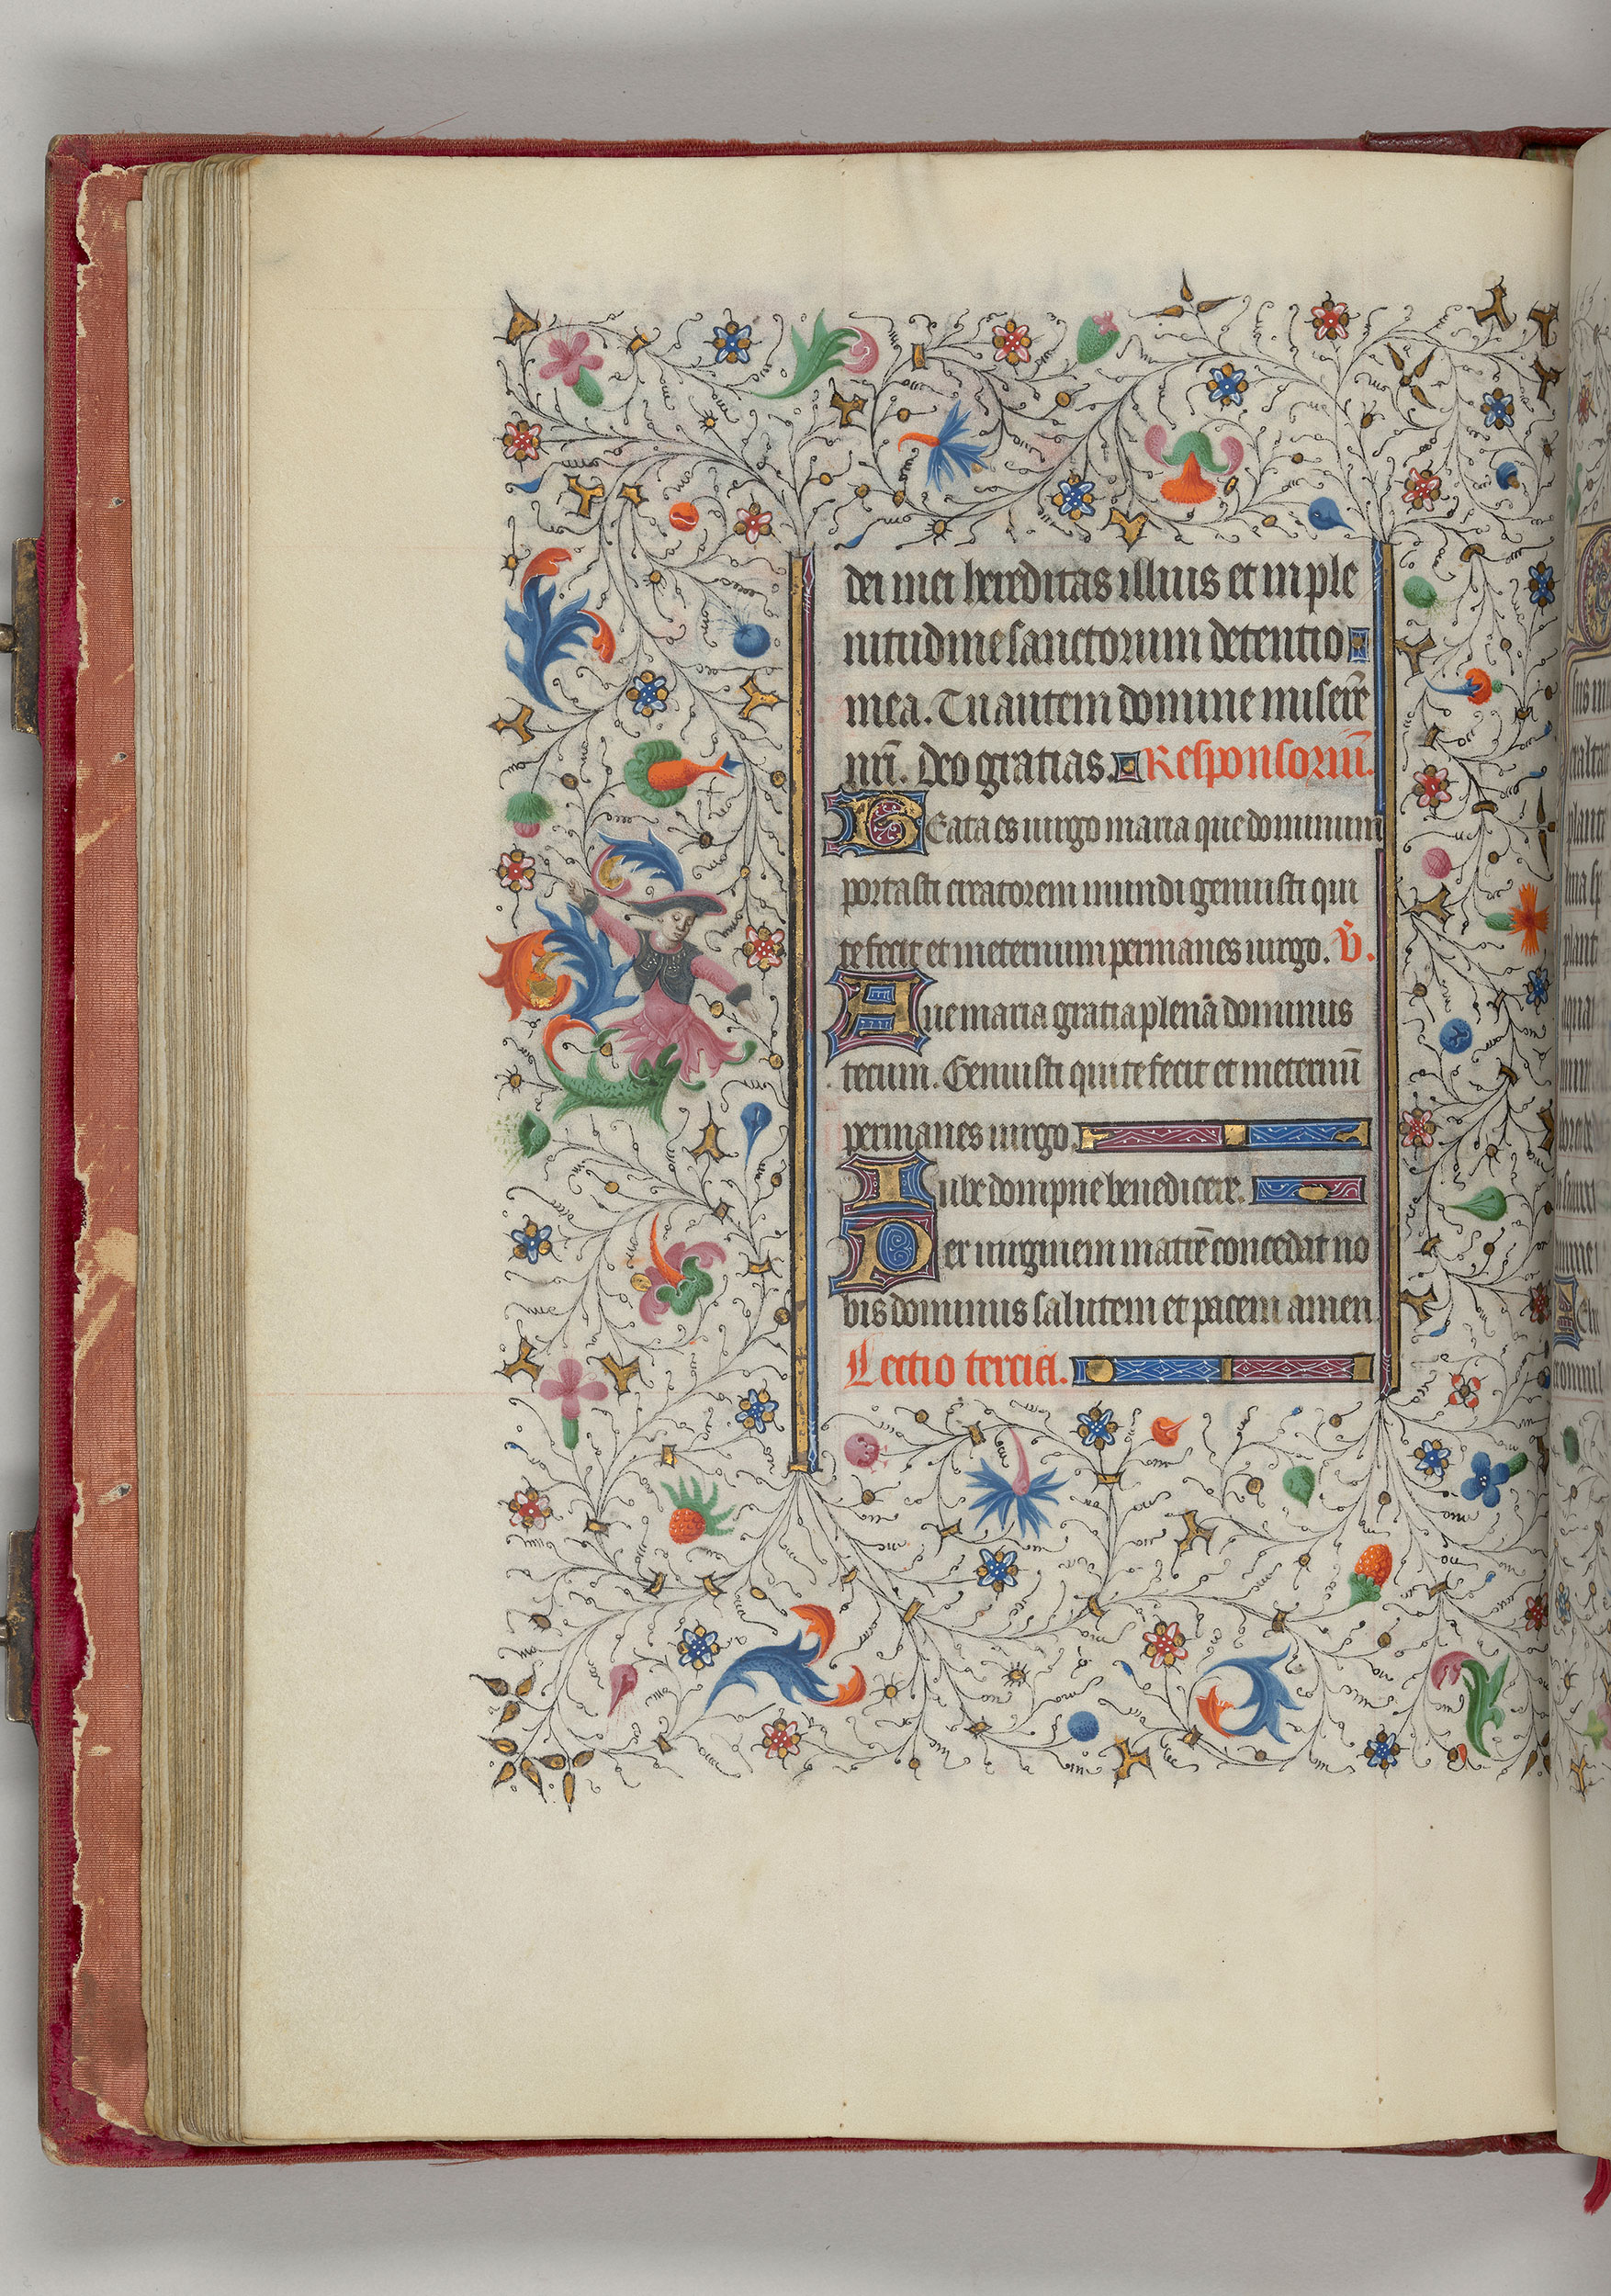 dei mei hereditas illius et in ple
nitudine sanctorum detentio
mea. Tu autem domine misere᷒
nr̄i. Deo gratias. Responsoriū.
Beata es uirgo maria que dominum
portasti creatorem mundi genuisti qui
te fecit et ineternum permanes uirgo. v̄.
Aue maria gratia plena dominus
tecum. Genuisti qui te fecit et ineternū
permanes uirgo.
Iube dompne benedicere.
Per uirginem matrē concedat no
bis dominus salutem et pacem amen
Lectio tercia.